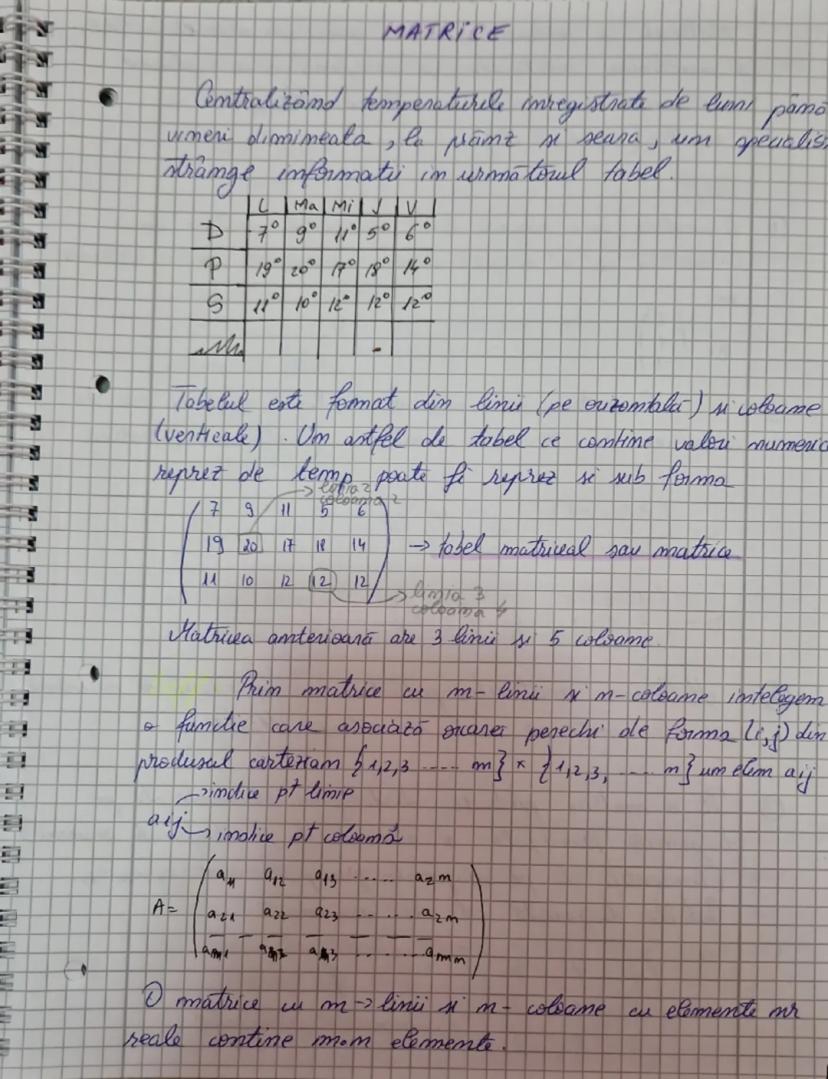 MATRICE
Centralizând temperaturile inregistrate de luni până
vineri dimineata, la prânz si seara, un specialis
strânge informatii in următorul tabel.
L Ma Mi J V
D 7° 9° 11° 5° 6°
P 19° 20° 17° 18° 14°
S 11° 10° 12° 12° 12°
Tabelul este format din linii (pe orizontală) si coloane
(verticale). Un astfel de tabel ce contine valori numeric
reprez de temp poate fi reprez si sub forma
linia 2
coloana 2
7 9 11 5 6
19 20 17 18 14 → tabel matriceal sau matrice
11 10 12 12 12
linia 3
coloana 4
Matricea anterioară are 3 linii si 5 coloane
Prin matrice cu m-linii si n-coloane intelegem
o functie care asociază oricarei perechi de forma (i,j) din
produsul cartezian {1,2,3 ..... m} × {1,2,3, ..... n} un elem aij
indice pt linie
aij
indice pt coloană
a11 a12 a13 ..... a2n
A= a21 a22 a23 ..... a2n
am1 am2 am3 ..... amn
O matrice cu m→linii si n- coloane cu elemente nr
reale contine m·n elemente.